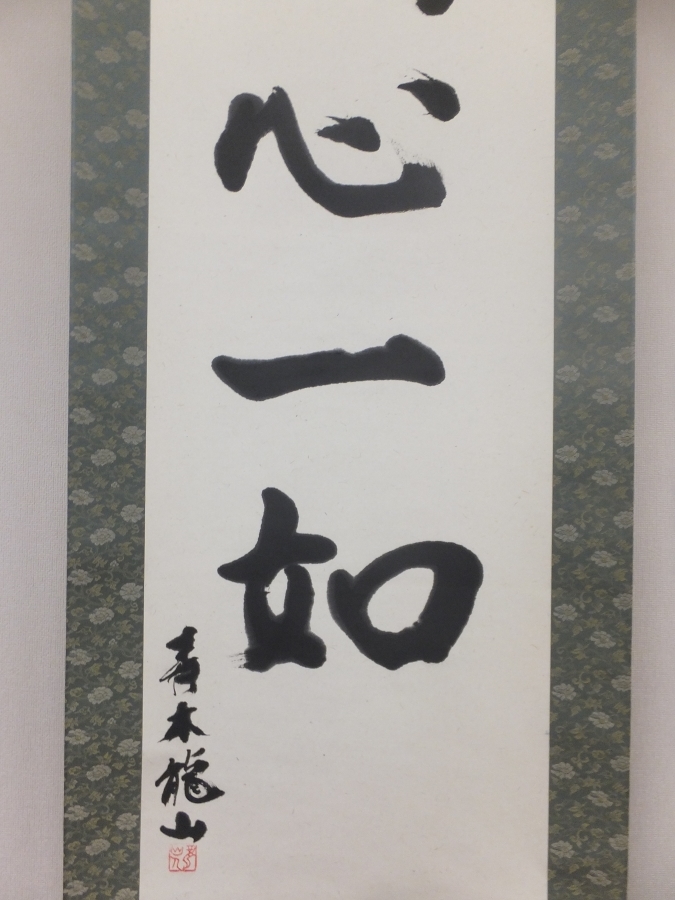 心一如
青木龍山